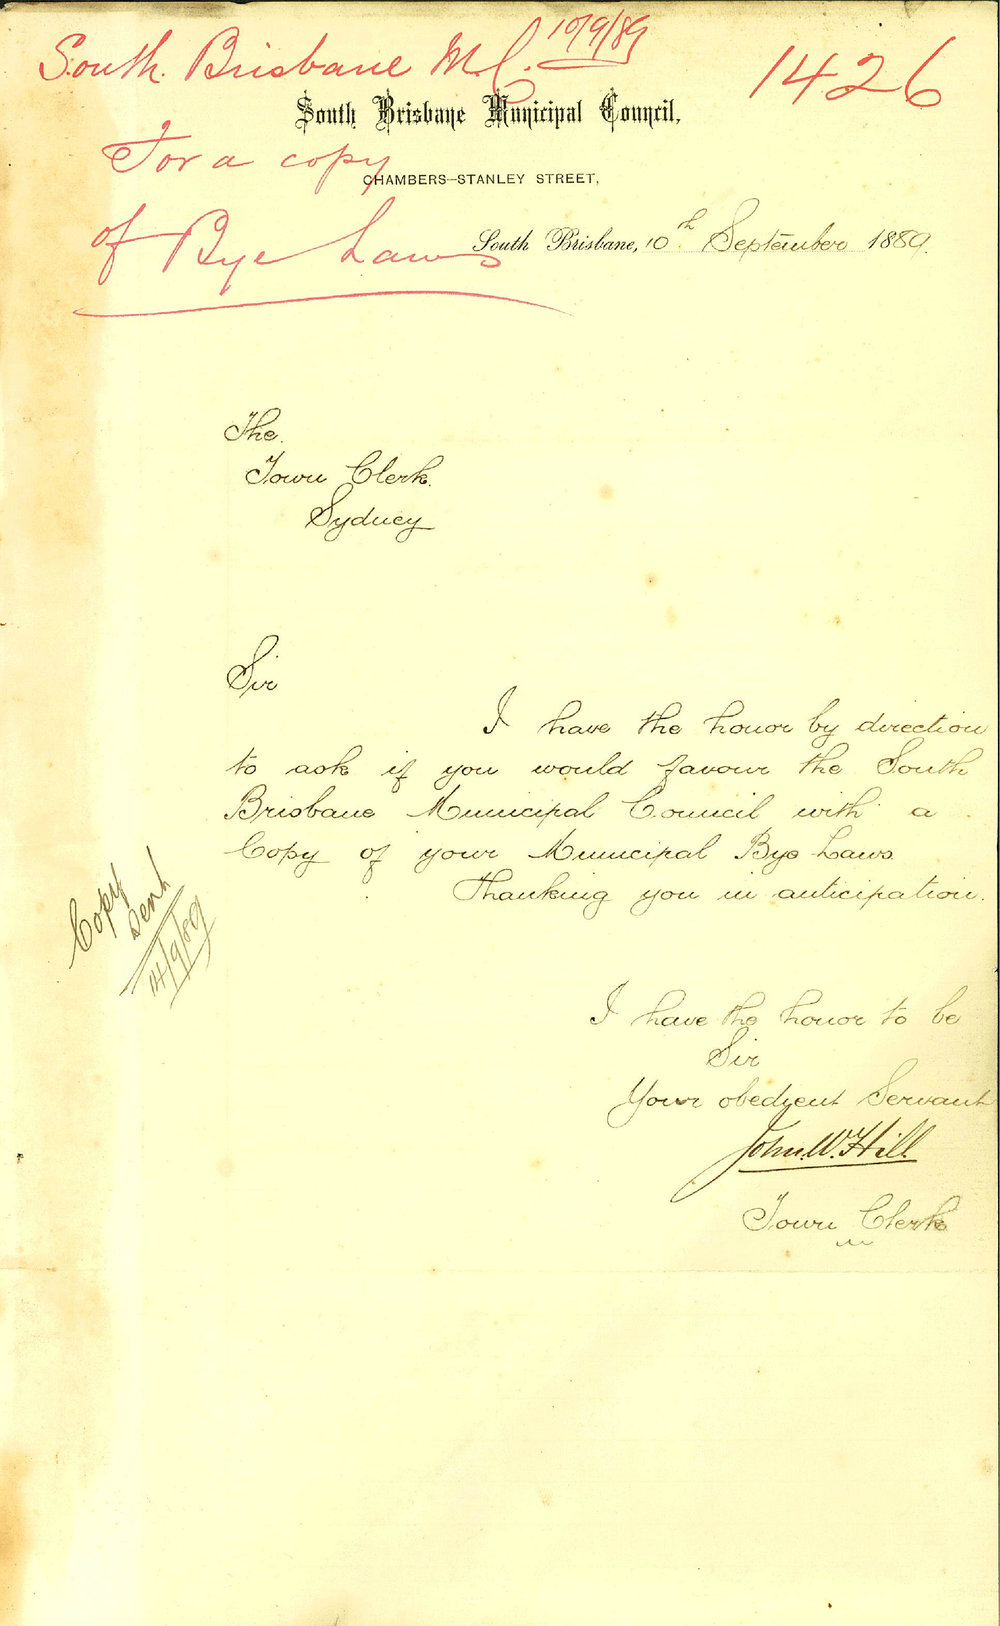 South. Brisbane M.C. 10/9/89
1426
South Brisbane Municipal Council,
For a copy
CHAMBERS—STANLEY STREET,
of Bye Laws
South Brisbane, 10th September 1889.
The.
Town Clerk.
Sydney
Sir
I have the honor by direction
to ask if you would favour the South
Brisbane Municipal Council with a
Copy of your Municipal Bye Laws.
Thanking you in anticipation.
Copy
Sent
14/9/89
I have the honor to be
Sir
Your obedyent Servant
John. W. Hill
Town Clerk